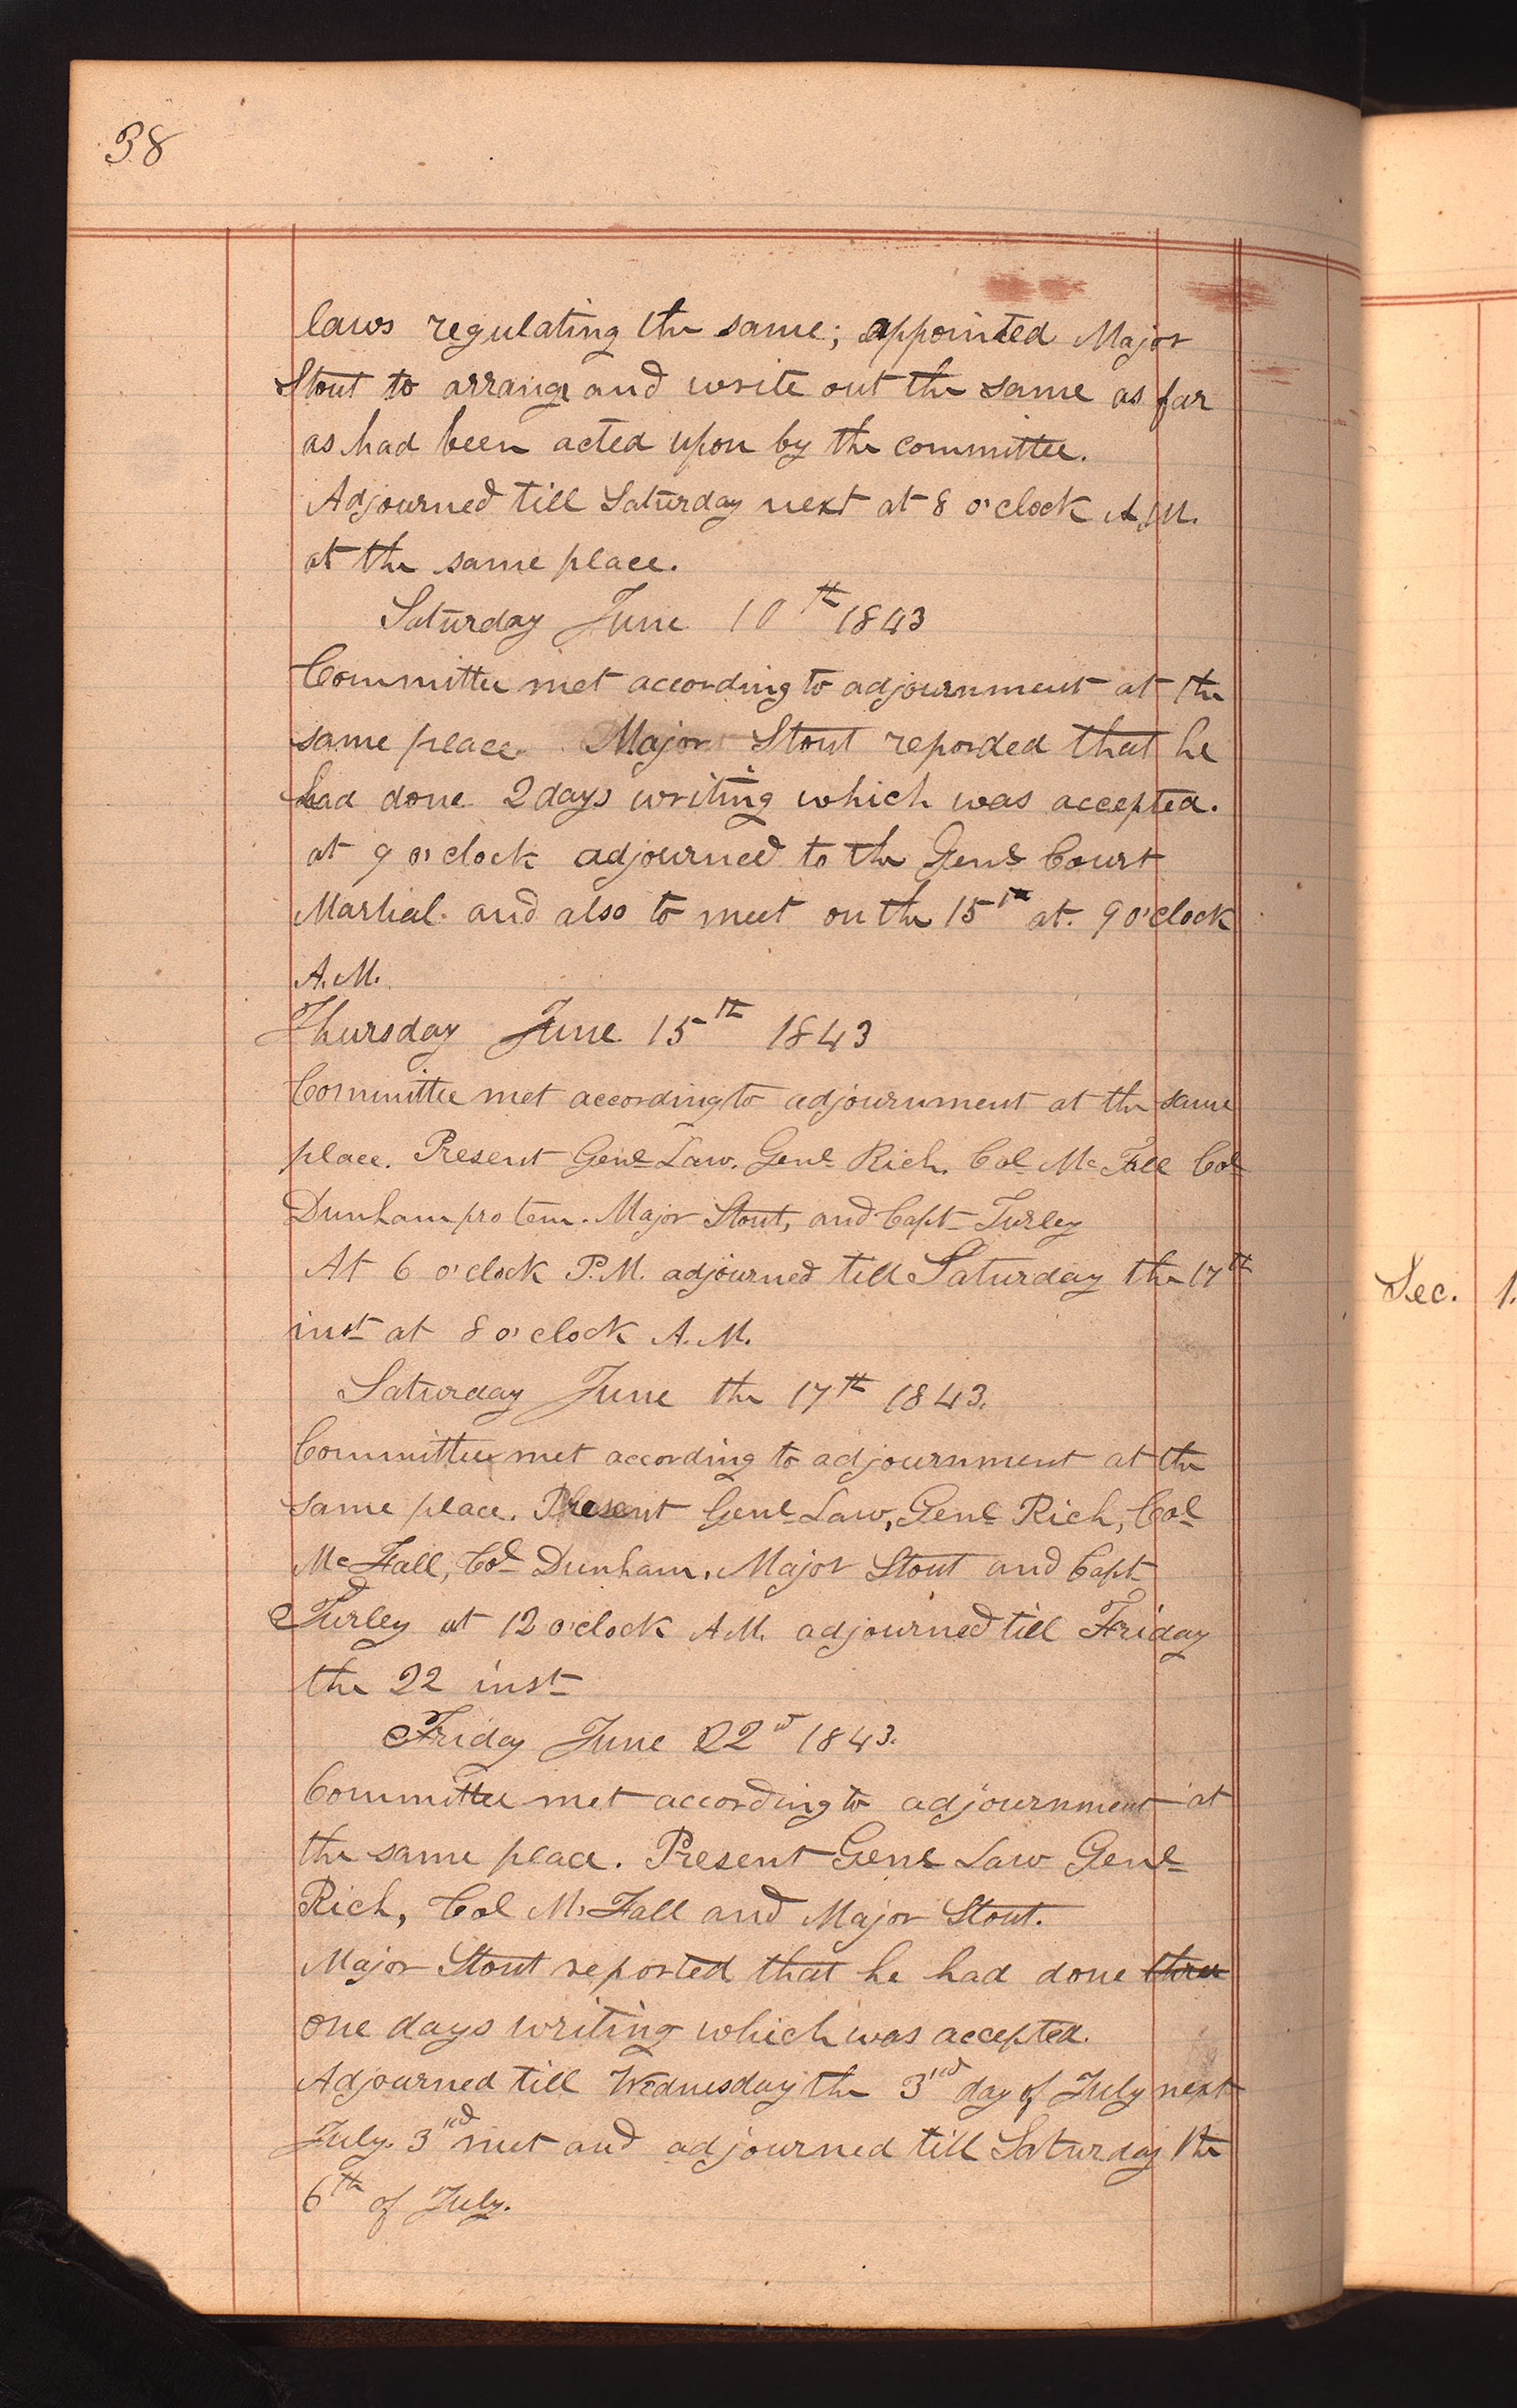 38
laws regulating the same; appointed Major
Stout to arrange and write out the same as far
as had been acted upon by the committee.
Adjourned till Saturday next at 8 o'clock A.M.
at the same place.
Saturday June 10th 1843
Committee met according to adjournment at the
same place. Major Stout reporded that he
had done 2 days writing which was accepted.
at 9 o'clock adjourned to the Genl Court
Martial. and also to meet on the 15th at. 9 o'clock
A.M.
Thursday June 15th 1843
Committee met according to adjournment at the same
place. Present Genl Law. Genl Rich. Col Mc Fall Col
Dunham pro tem. Major Stout, and Capt Turley
At 6 o'clock P.M. adjourned till Saturday the 17th
inst at 8 o'clock A.M.
Saturday June the 17th 1843.
Committee met according to adjournment at the
same place. Present Genl Law, Genl Rich, Col
Mc Fall, Col Dunham, Major Stout and Capt
Turley at 12 o'clock A.M. adjourned till Friday
the 22 inst
Friday June 22d 1843.
Committee met according to adjournment at
the same place. Present Genl Law Genl
Rich, Col Mc Fall and Major Stout.
Major Stout reported that he had done three
one days writing which was accepted.
Adjourned till Wednesday the 3rd day of July next
July. 3rd met and adjourned till Saturday the
6th of July.
Sec. 1.